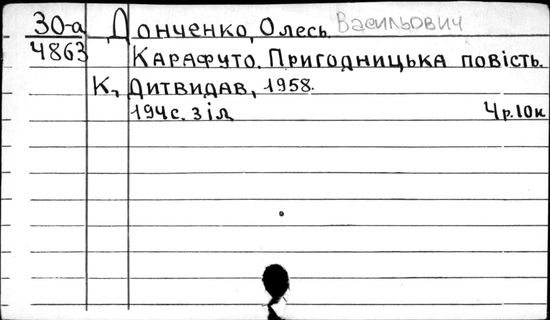 30-а Донченко, Олесь Васильович
4863 Карафуто. Пригодницька повість.
К., Дитвидав, 1958.
194 с. з іл. 4 р. 10 к